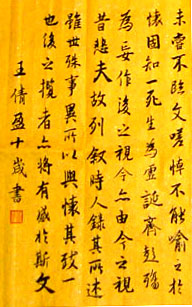 未嘗不臨文嗟悼不能喻之於
懷固知一死生為虛誕齊彭殤
為妄作後之視今亦由今之視
昔悲夫故列敘時人錄其所述
雖世殊事異所以興懷其致一
也後之攬者亦將有感於斯文
王倩盈十歲書